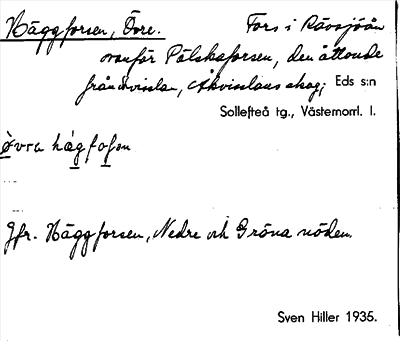 Häggforsen, Övre. Fors i Rävsjöån
ovanför Pålskaforsen, den åttonde
från Åkvisslan, Åkvisslans skog; Eds s:n
Sollefteå tg., Västernorrl. l.
övra häɡfoʃen
Jfr. Häggforsen, Nedre och Gröna nöden.
Sven Hiller 1935.